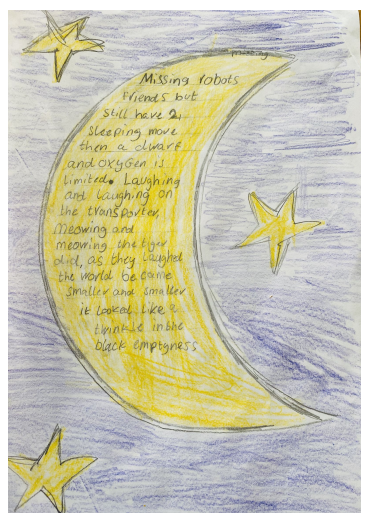 missing
Missing robots
friends but
still have 2,
sleeping more
then a dwarf
and oxygen is
limited. Laughing
and laughing on
the transporter,
Meowing and
meowing the tiger
did, as they laughed
the world became
smaller and smaller
it looked like a
in the
black emptyness